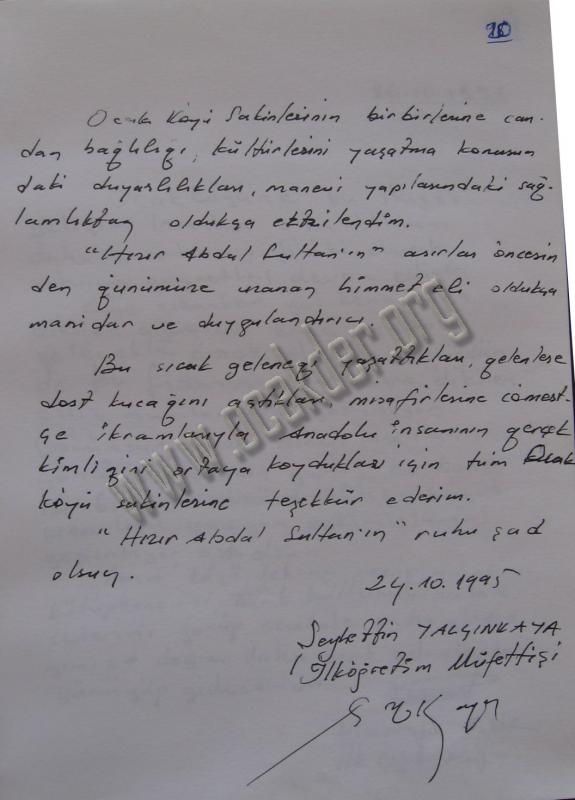 20
Ocak Köyü Sakinlerinin birbirlerine can-
dan bağlılığı, kültürlerini yaşatma konusun
daki duyarlılıkları, manevi yapılarındaki sağ-
lamlıktan oldukça etkilendim.
"Hızır Abdal Sultan'ın" asırlar öncesin
den günümüze uzanan himmet eli oldukça
manidar ve duygulandırıcı.
Bu sıcak geleneği yaşattıkları, gelenlere
dost kucağını açtıkları, misafirlerine cömert-
çe ikramlarıyla Anadolu insanının gerçek
kimliğini ortaya koydukları için tüm Ocak
köyü sakinlerine teşekkür ederim.
"Hızır Abdal Sultan'ın" ruhu şad
olsun.
24.10.1995
Seyfettin YALÇINKAYA
İlköğretim Müfettişi
www.ocakder.org